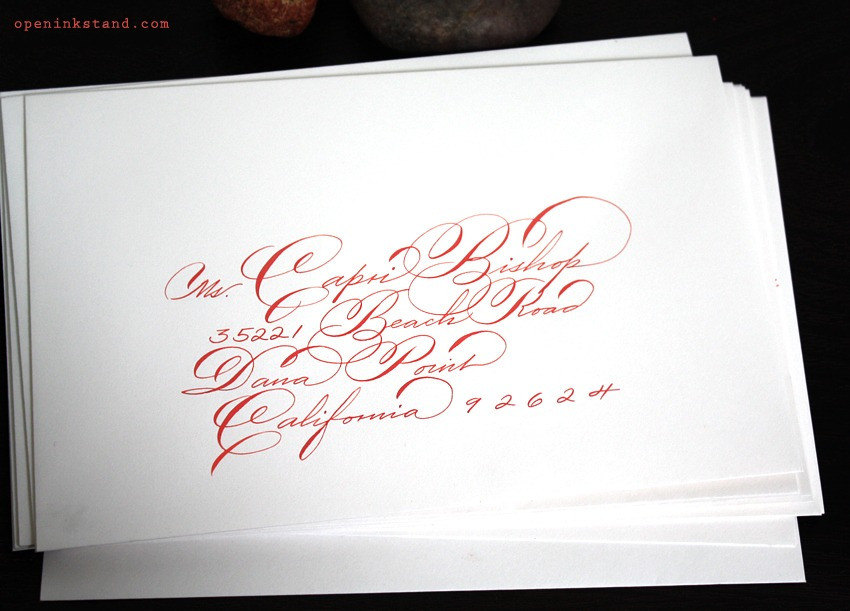 openinkstand.com
Ms. Capri Bishop
35221 Beach Road
Dana Point
California 92624